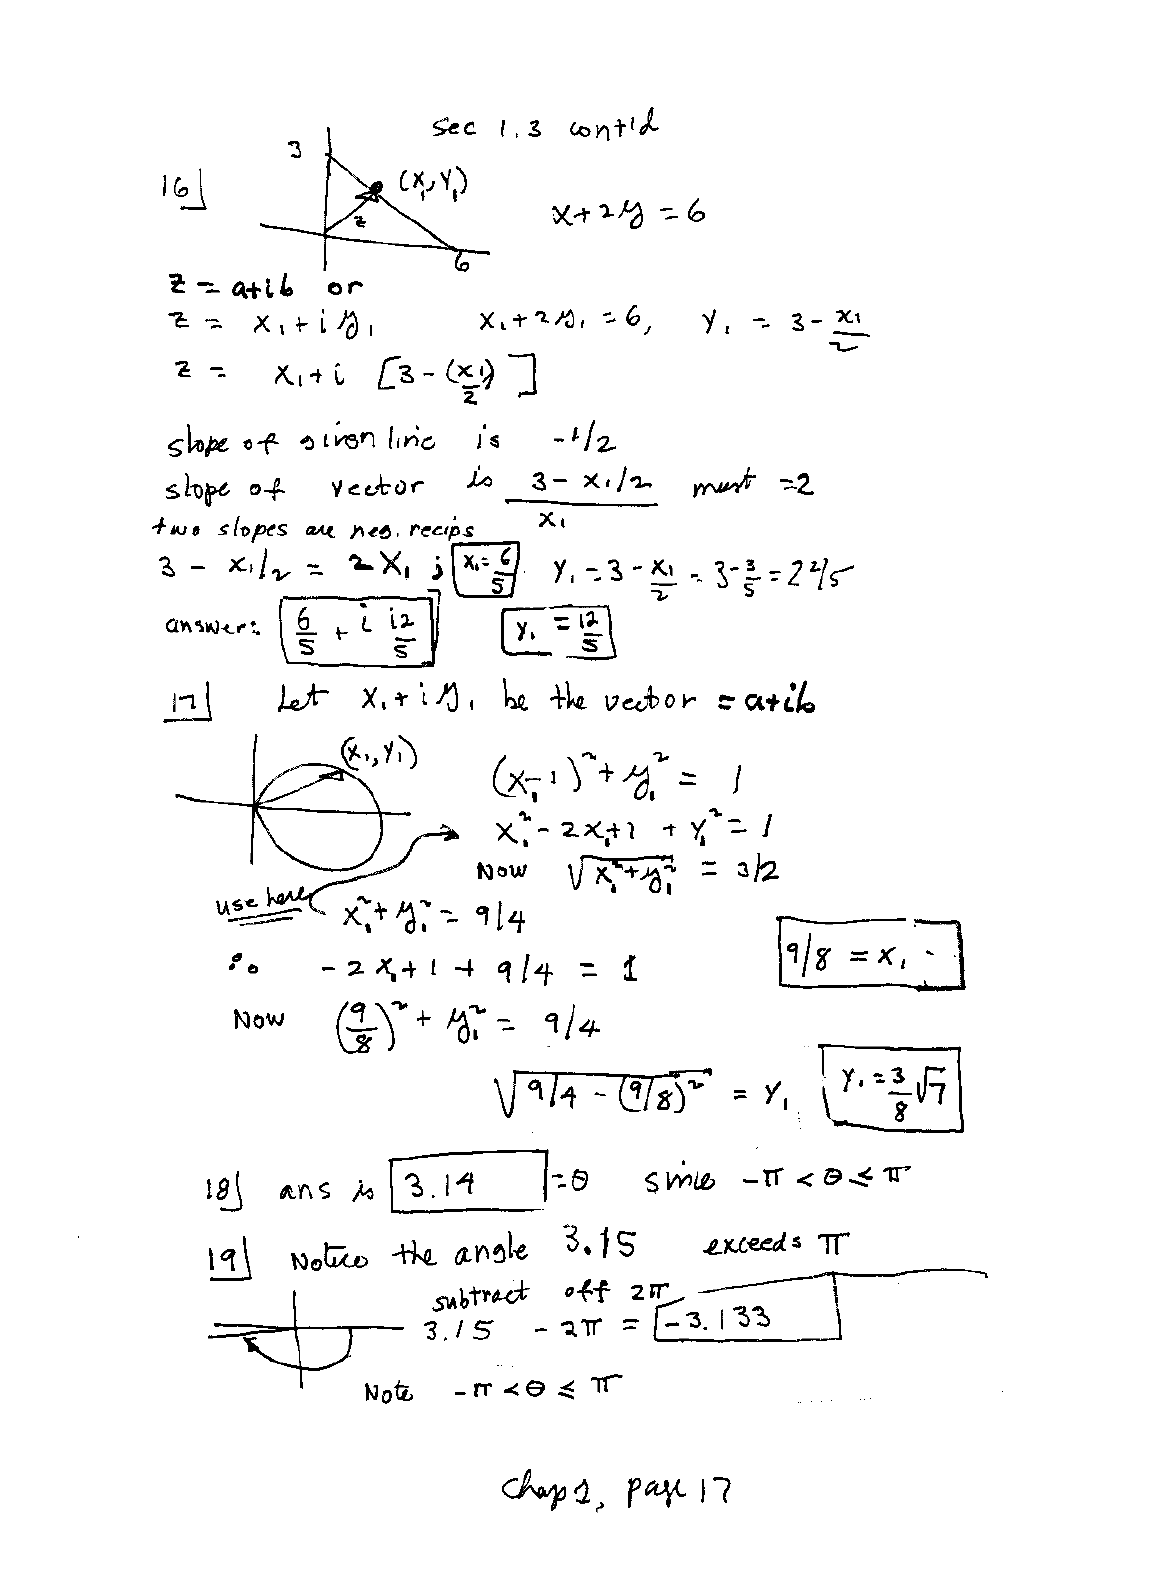 sec 1.3 cont'd
3
16] (x₁, y₁)
z
x+2y = 6
6
z = a+ib or
z = x₁+iy₁ x₁+2y₁ = 6, y₁ = 3 - x₁/2
z = x₁+i [3-(x₁/2)]
slope of given line is -1/2
slope of vector is (3 - x₁/2)/x₁ must =2
two slopes are neg. recips
3 - x₁/2 = 2x₁ ; x₁ = 6/5 y₁ = 3 - x₁/2 = 3 - 3/5 = 2 2/5
answer: 6/5 + i 12/5 y₁ = 12/5
17] Let x₁+iy₁ be the vector = a+ib
(x₁, y₁)
(x₁-1)² + y₁² = 1
x₁² - 2x₁+1 + y₁² = 1
Now √(x₁²+y₁²) = 3/2
use here x₁²+y₁² = 9/4
∴ -2x₁+1 + 9/4 = 1 9/8 = x₁
Now (9/8)² + y₁² = 9/4
√(9/4 - (9/8)²) = y₁ y₁ = 3/8 √7
18] ans is 3.14 = θ since -π < θ ≤ π
19] Notice the angle 3.15 exceeds π
subtract off 2π
3.15 - 2π = -3.133
Note -π < θ ≤ π
chap 1, page 17